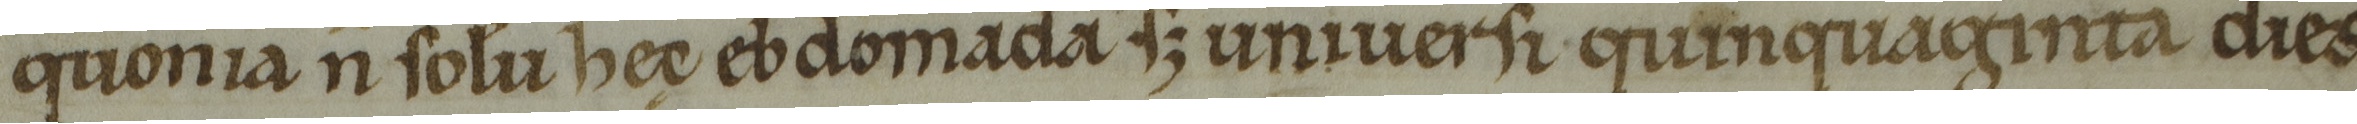 quonia n solu hęc ebdomada sꝫ uniuersi quinquaginta dies